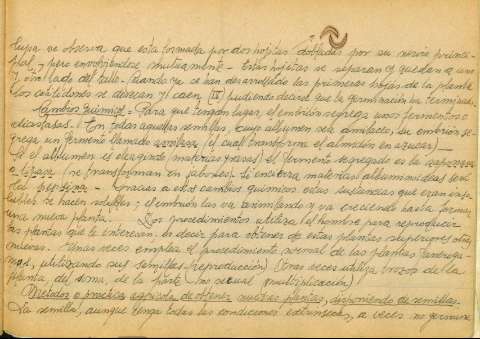 lupa se observa que esta formada por dos hojitas dobladas por su nervio princi-
pal, y pero envolviendose mutuamente - Estas hojitas se separan y quedan a uno
y otro lado del tallo. Cuando ya se han desarrollado las primeras hojas de la planta
los cotiledones se desecan y caen, pudiendo decirse que la germinación ha terminado.
Cambios químicos = Para que tengan lugar, el embrión segrega unos fermentos o
diastasas. En todas aquellas semillas, cuyo albumen sea amiláceo, su embrión se-
grega un fermento llamado (el cual transforma el almidón en azúcar) -
Si el albumen es oleaginoso (materias grasas) el fermento segregado es la
o lipasa (se transforman en jabones). Si encierra materias albuminoideas
pepsina - Gracias a estos cambios químicos estas sustancias que eran inso-
lubles se hacen solubles; el embrión las va asimilando y va creciendo hasta formar
una nueva planta. Los procedimientos utiliza el hombre para reproducir
las plantas que le interesan. Es decir para obtener de estas plantas superiores otras
nuevas. Unas veces emplea el procedimiento normal de las plantas faneróga-
mas, utilizando sus semillas (reproducción). Otras veces utiliza trozos de la
planta, de la parte no sexual (multiplicación)
Metodos o práctica agrícola de obtener nuevas plantas, disponiendo de semillas.
La semilla, aunque tenga todas las condiciones extrinsecas, a veces no germina